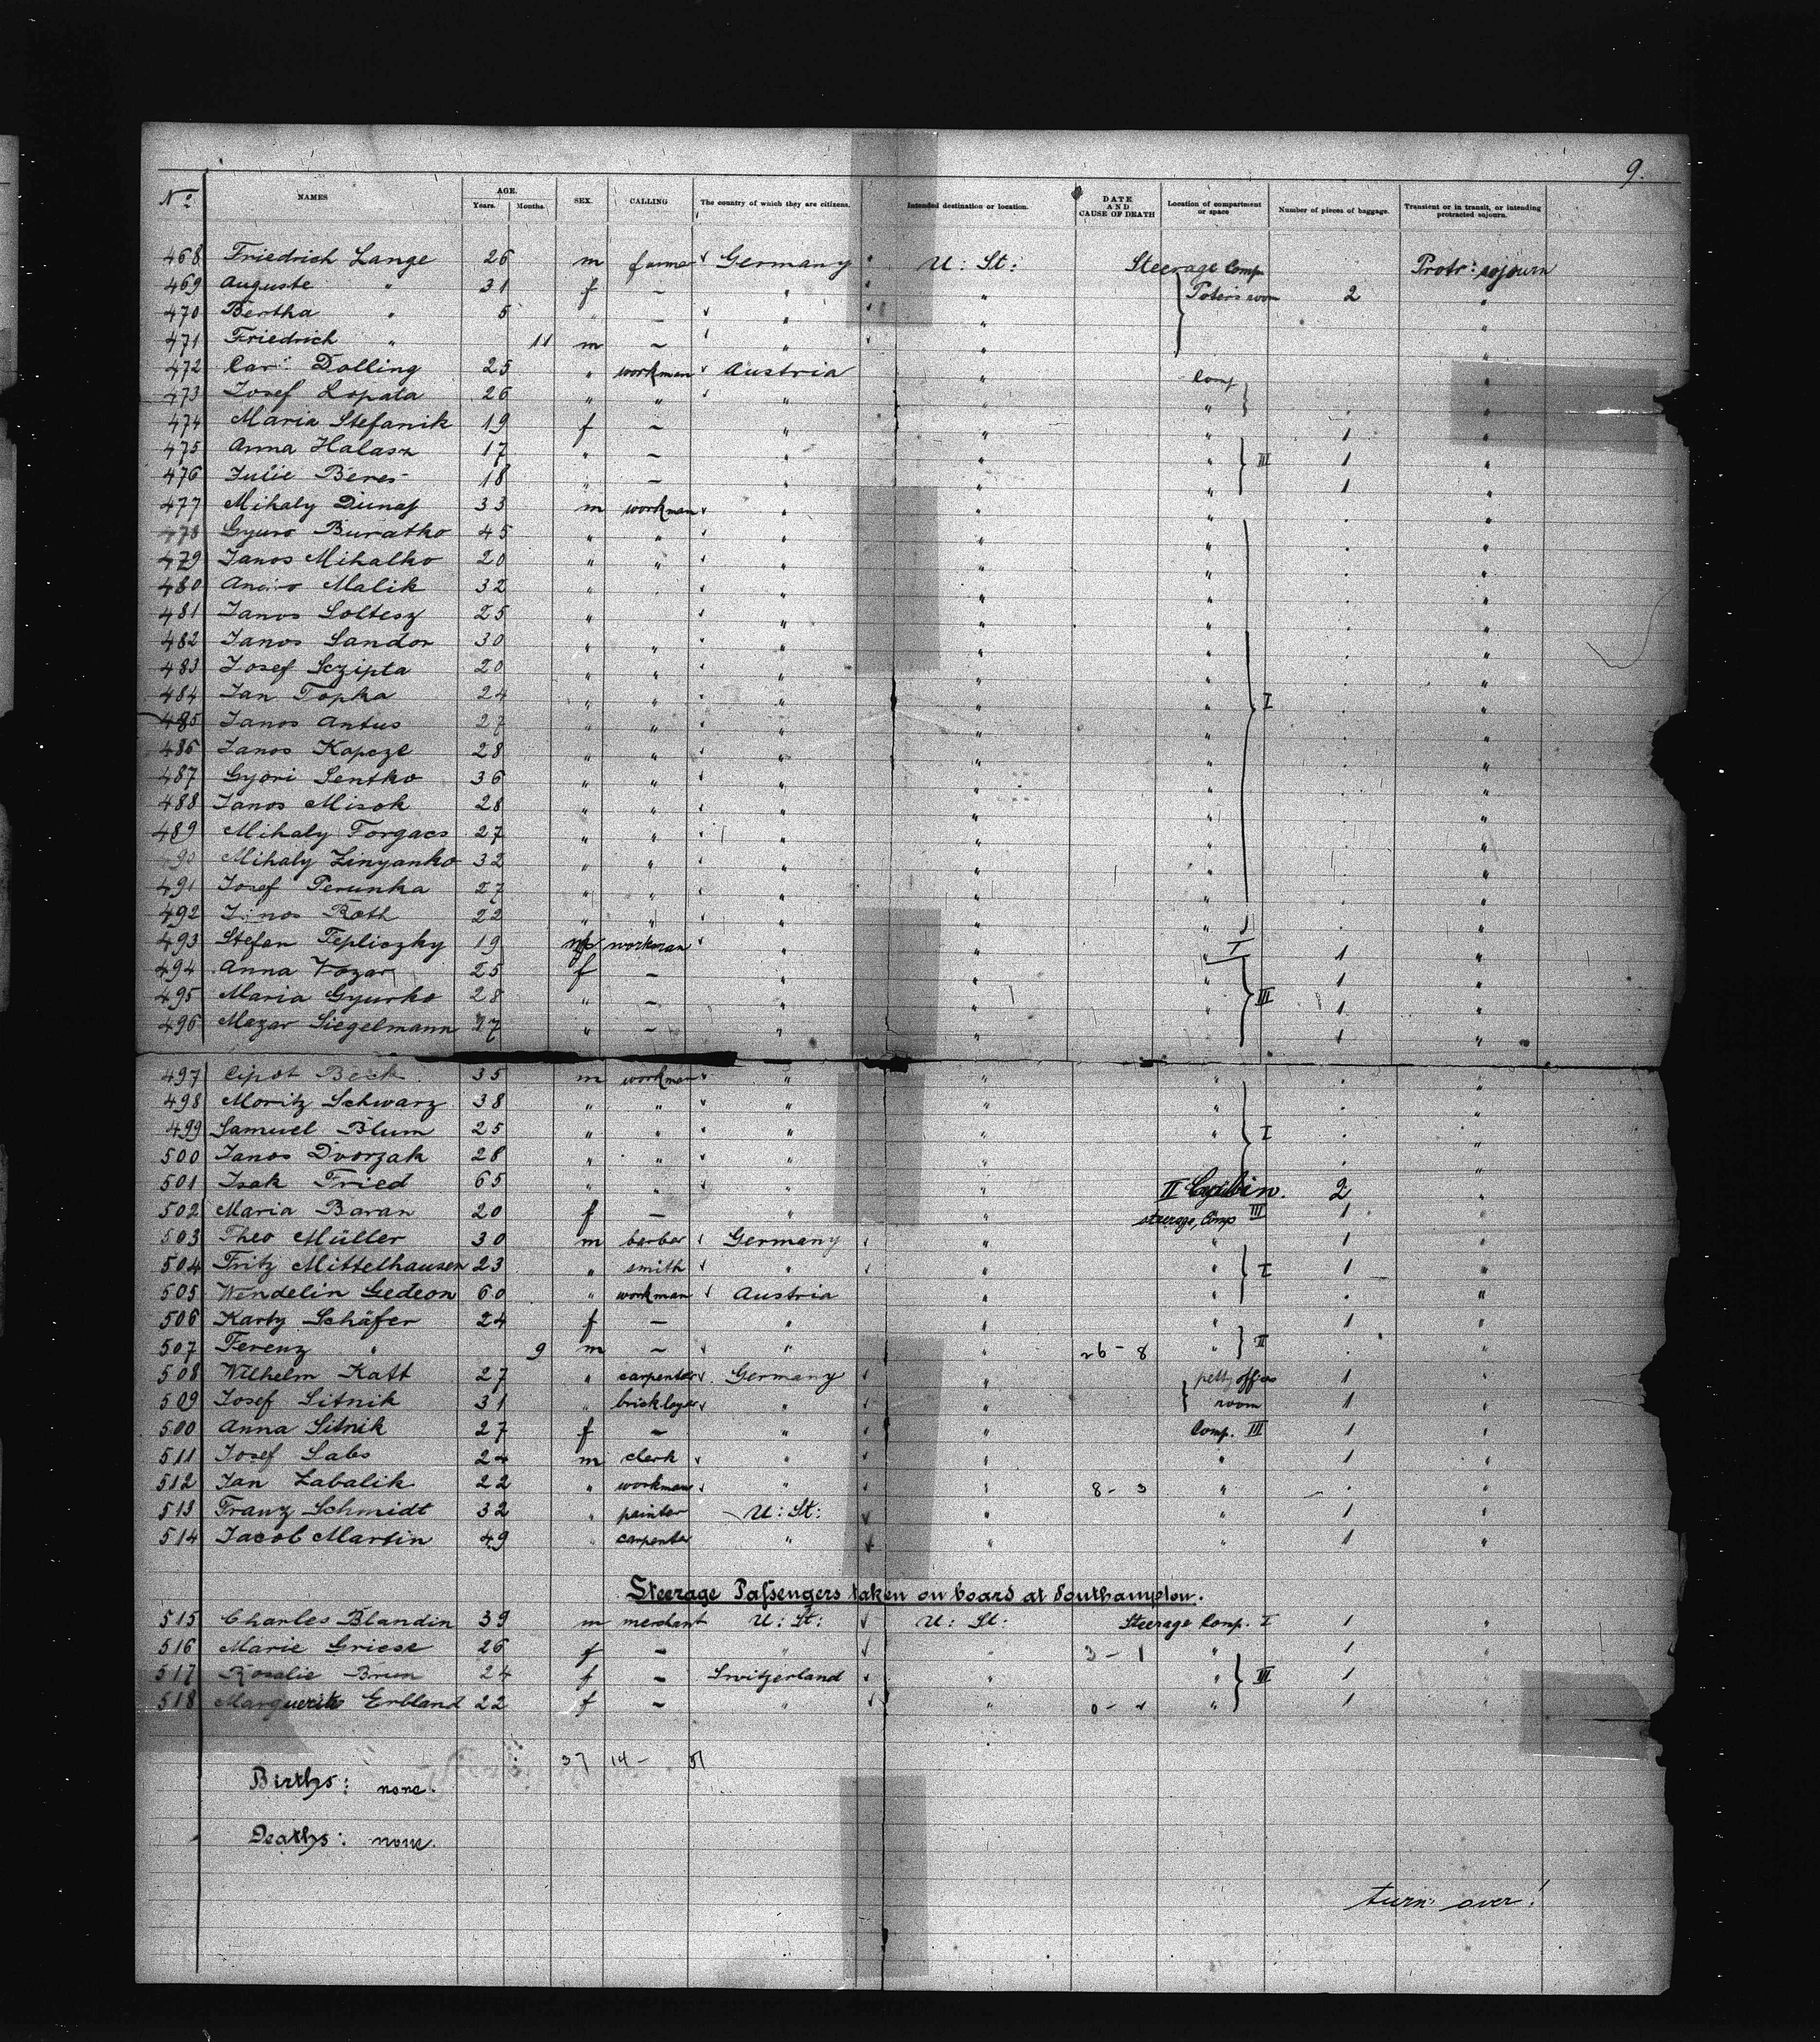 9.
No NAMES AGE. Years. Months. SEX. CALLING The country of which they are citizens. Intended destination or location. DATE AND CAUSE OF DEATH Location of compartment or space Number of pieces of baggage. Transient or in transit, or intending protracted sojourn.
468 Friedrich Lange 26 m farmer Germany U: St: Steerage Comp Protr: sojourn
469 Auguste " 31 f – " " room 2 "
470 Bertha " 5 " – " " "
471 Friedrich " 11 m – " " "
472 Carl Dolling 25 " workman Austria " Comp "
473 Josef Lopata 26 " " " " " "
474 Maria Stefanik 19 f – " " " 1 "
475 Anna Halasz 17 " – " " " III 1 "
476 Julie Beres 18 " – " " " 1 "
477 Mihaly Dunaj 33 m workman " " " "
478 Gyuro Buratko 45 " " " " " "
479 Janos Mihalko 20 " " " " " "
480 Malik 32 " " " " " "
481 Janos Soltesz 25 " " " " "
482 Janos Sandor 30 " " " " " "
483 Josef Sczipta 20 " " " " " "
484 Jan Topka 24 " " " " " I "
485 Janos Antus 27 " " " " " "
486 Janos Kapcze 28 " " " " " "
487 Gyori Sentko 36 " " " " " "
488 Janos Misok 28 " " " " " "
489 Mihaly Forgacs 27 " " " " " "
490 Mihaly Linyanko 32 " " " " " "
491 Josef Perunka 27 " " " " " "
492 Janos Roth 22 " " " " " "
493 Stefan Tepliczky 19 m workman " " " I 1 "
494 Anna Vozar 25 f – " " " 1 "
495 Maria Gyurko 28 " – " " " III 1 "
496 Mazar Siegelmann 27 " – " " 1
497 Lipot Beck 35 m workman " " " "
498 Moritz Schwarz 38 " " " " " "
499 Samuel Blum 25 " " " " " I "
500 Janos Dvorzak 28 " " " " "
501 Isak Fried 65 " " " " II Cajüte 2 "
502 Maria Baran 20 f – " " steerage, Comp III 1 "
503 Theo Müller 30 m barber Germany " " 1 "
504 Fritz Mittelhausen 23 " smith " " " I 1 "
505 Wendelin Gedeon 60 " workman Austria " " "
506 Karty Schäfer 24 f – " " " 1 "
507 Ferenz " 9 m – " " 26 - 8 " II "
508 Wilhelm Katt 27 " carpenter Germany " petty officers 1 "
509 Josef Sitnik 31 " bricklayer " " room 1 "
500 Anna Sitnik 27 f – " " Comp. III 1 "
511 Josef Sabs 24 m clerk " " " 1 "
512 Jan Zabalik 22 " workman " " 8 - 3 " "
513 Franz Schmidt 32 " painter U: St: " " 1 "
514 Jacob Martin 49 " carpenter " " " 1 "
Steerage Passengers taken on board at Southampton.
515 Charles Blandin 39 m merchant U: St: U: St: Steerage Comp. I 1 "
516 Marie Griese 26 f – " " 3 - 1 " 1 "
517 Rosalie Brun 24 f – Switzerland " " III 1 "
518 Marguerite Erbland 22 f – " " " 1 "
37 14 - 51
Births: none.
Deaths: none.
turn over!